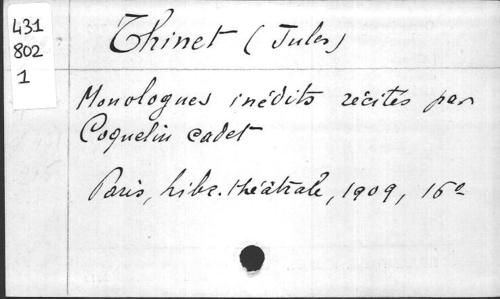 431
802
1
Thinet (Jules)
Monologues inédits récités par
Coquelin cadet
Paris, libr. théâtrale, 1909, 16º